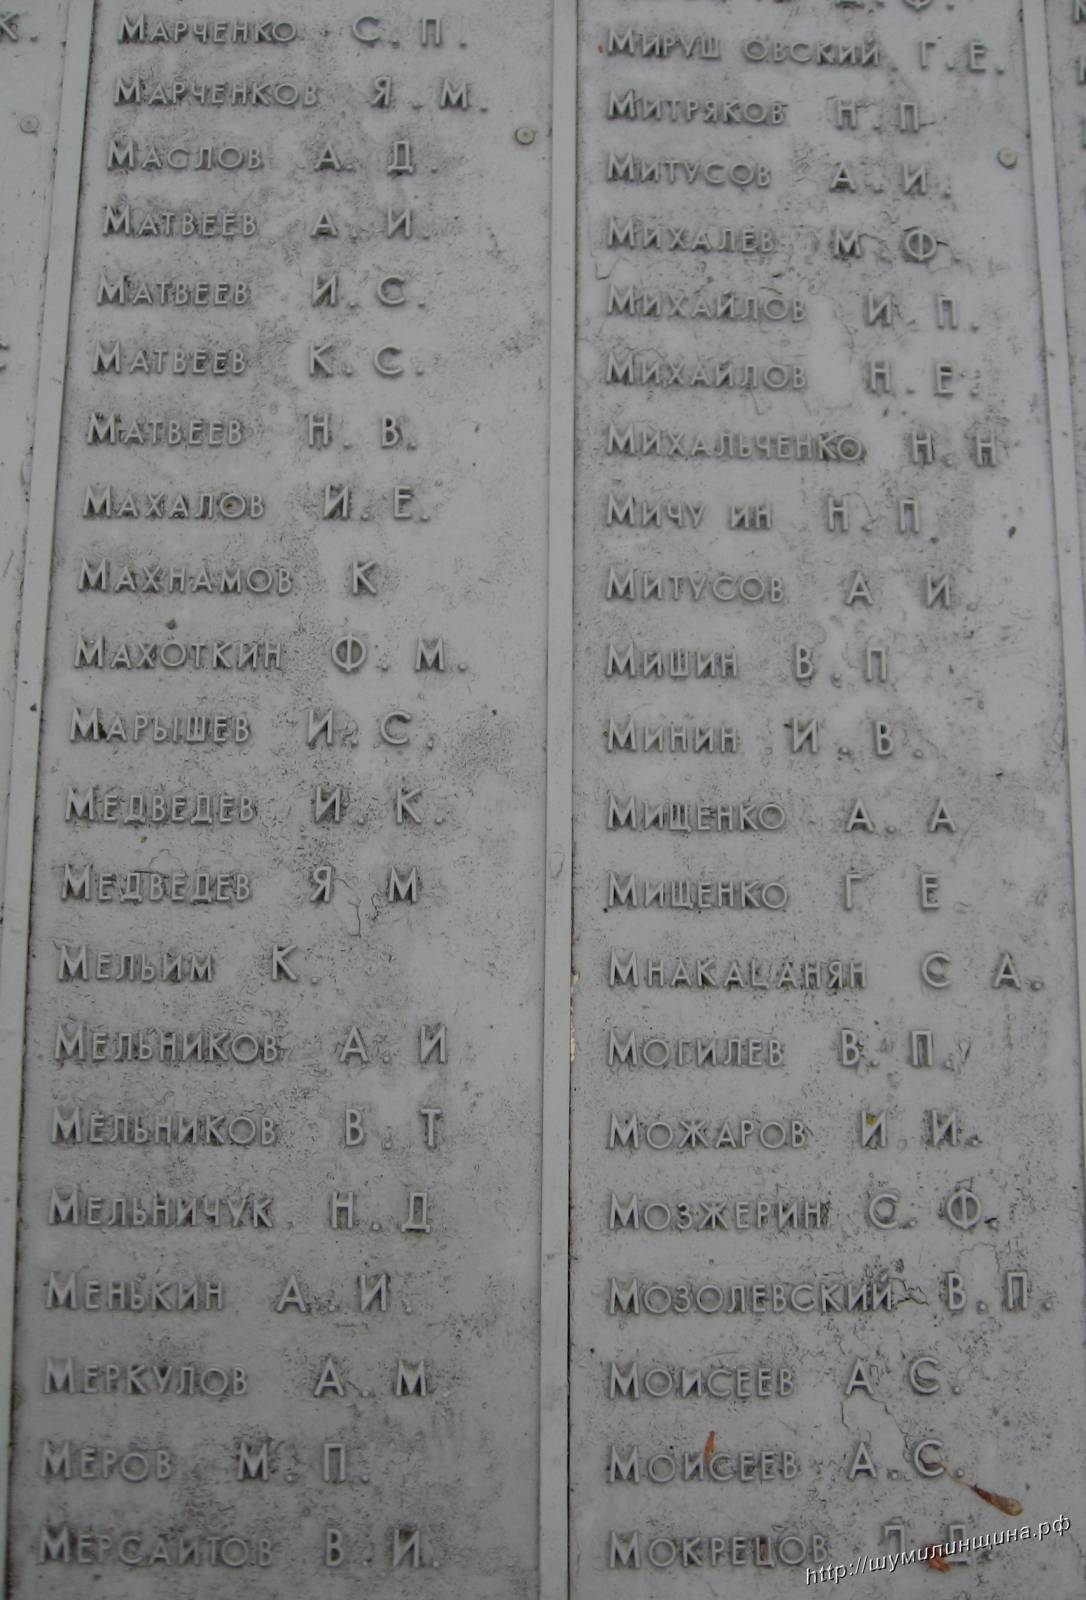 К.
Марченко С. П.
Марченков Я. М.
Маслов А. Д.
Матвеев А. И.
Матвеев И. С.
Матвеев К. С.
Матвеев Н. В.
Махалов И. Е.
Махнамов К
Махоткин Ф. М.
Марышев И. С.
Медведев И. К.
Медведев Я М
Мельим К.
Мельников А. И
Мельников В. Т
Мельничук Н. Д
Менькин А. И.
Меркулов А. М.
Меров М. П.
Мерсаитов В. И.
Мируш овский Г. Е.
Митряков Н. П
Митусов А. И.
Михалев М. Ф.
Михайлов И. П.
Михайлов Н. Е.
Михальченко Н. Н
Мичу ин Н. П
Митусов А И.
Мишин В. П
Минин И. В.
Мищенко А. А
Мищенко Г Е
Мнакацанян С А.
Могилев В. П.
Можаров И. И.
Мозжерин С. Ф.
Мозолевский В. П.
Моисеев А С.
Моисеев А. С.
Мокрецов
http://шумилинщина.рф